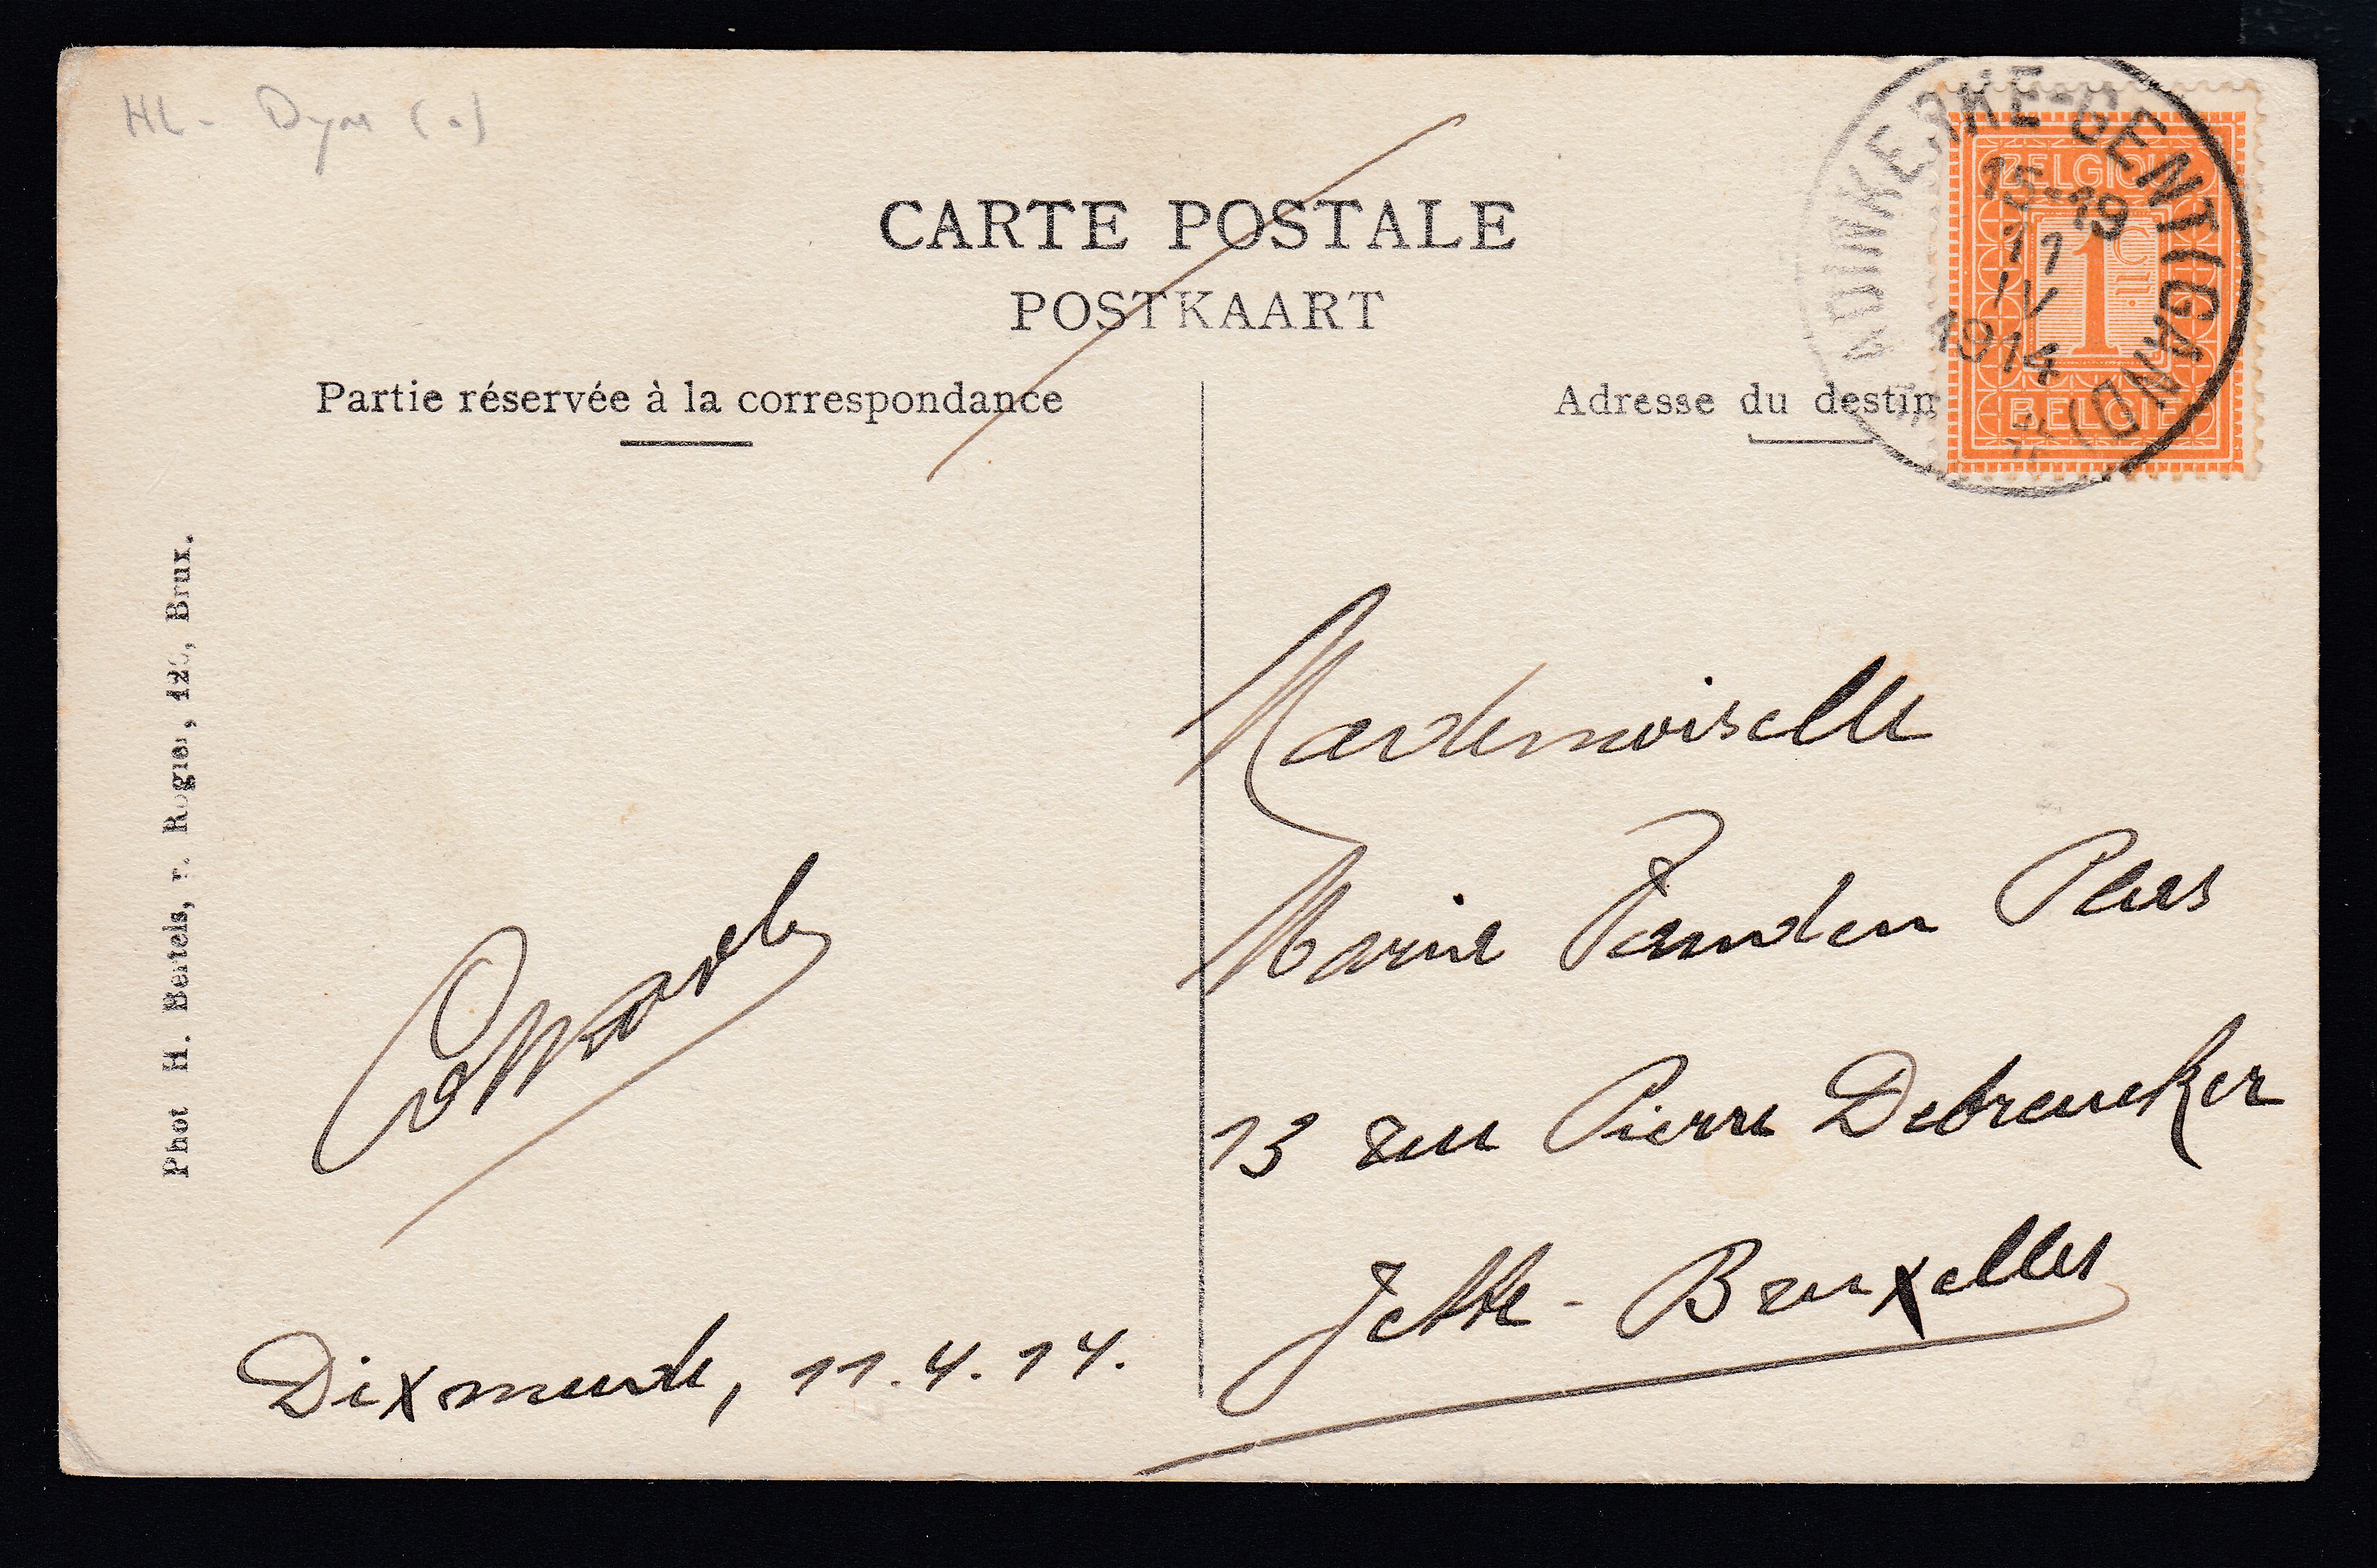 HL -
CARTE POSTALE
POSTKAART
Partie réservée à la correspondance
Adresse du destin
ADINKERKE-GENT (GAND)
15-19
11
IV
1914
BELGIQUE
1c
BELGIË
Phot H. Bertels, r. Rogier, 126, Brux.
Mademoiselle
Marie Vanden Plas
13 rue Pierre Debreucker
Jette - Bruxelles
Dixmude, 11.4.14.